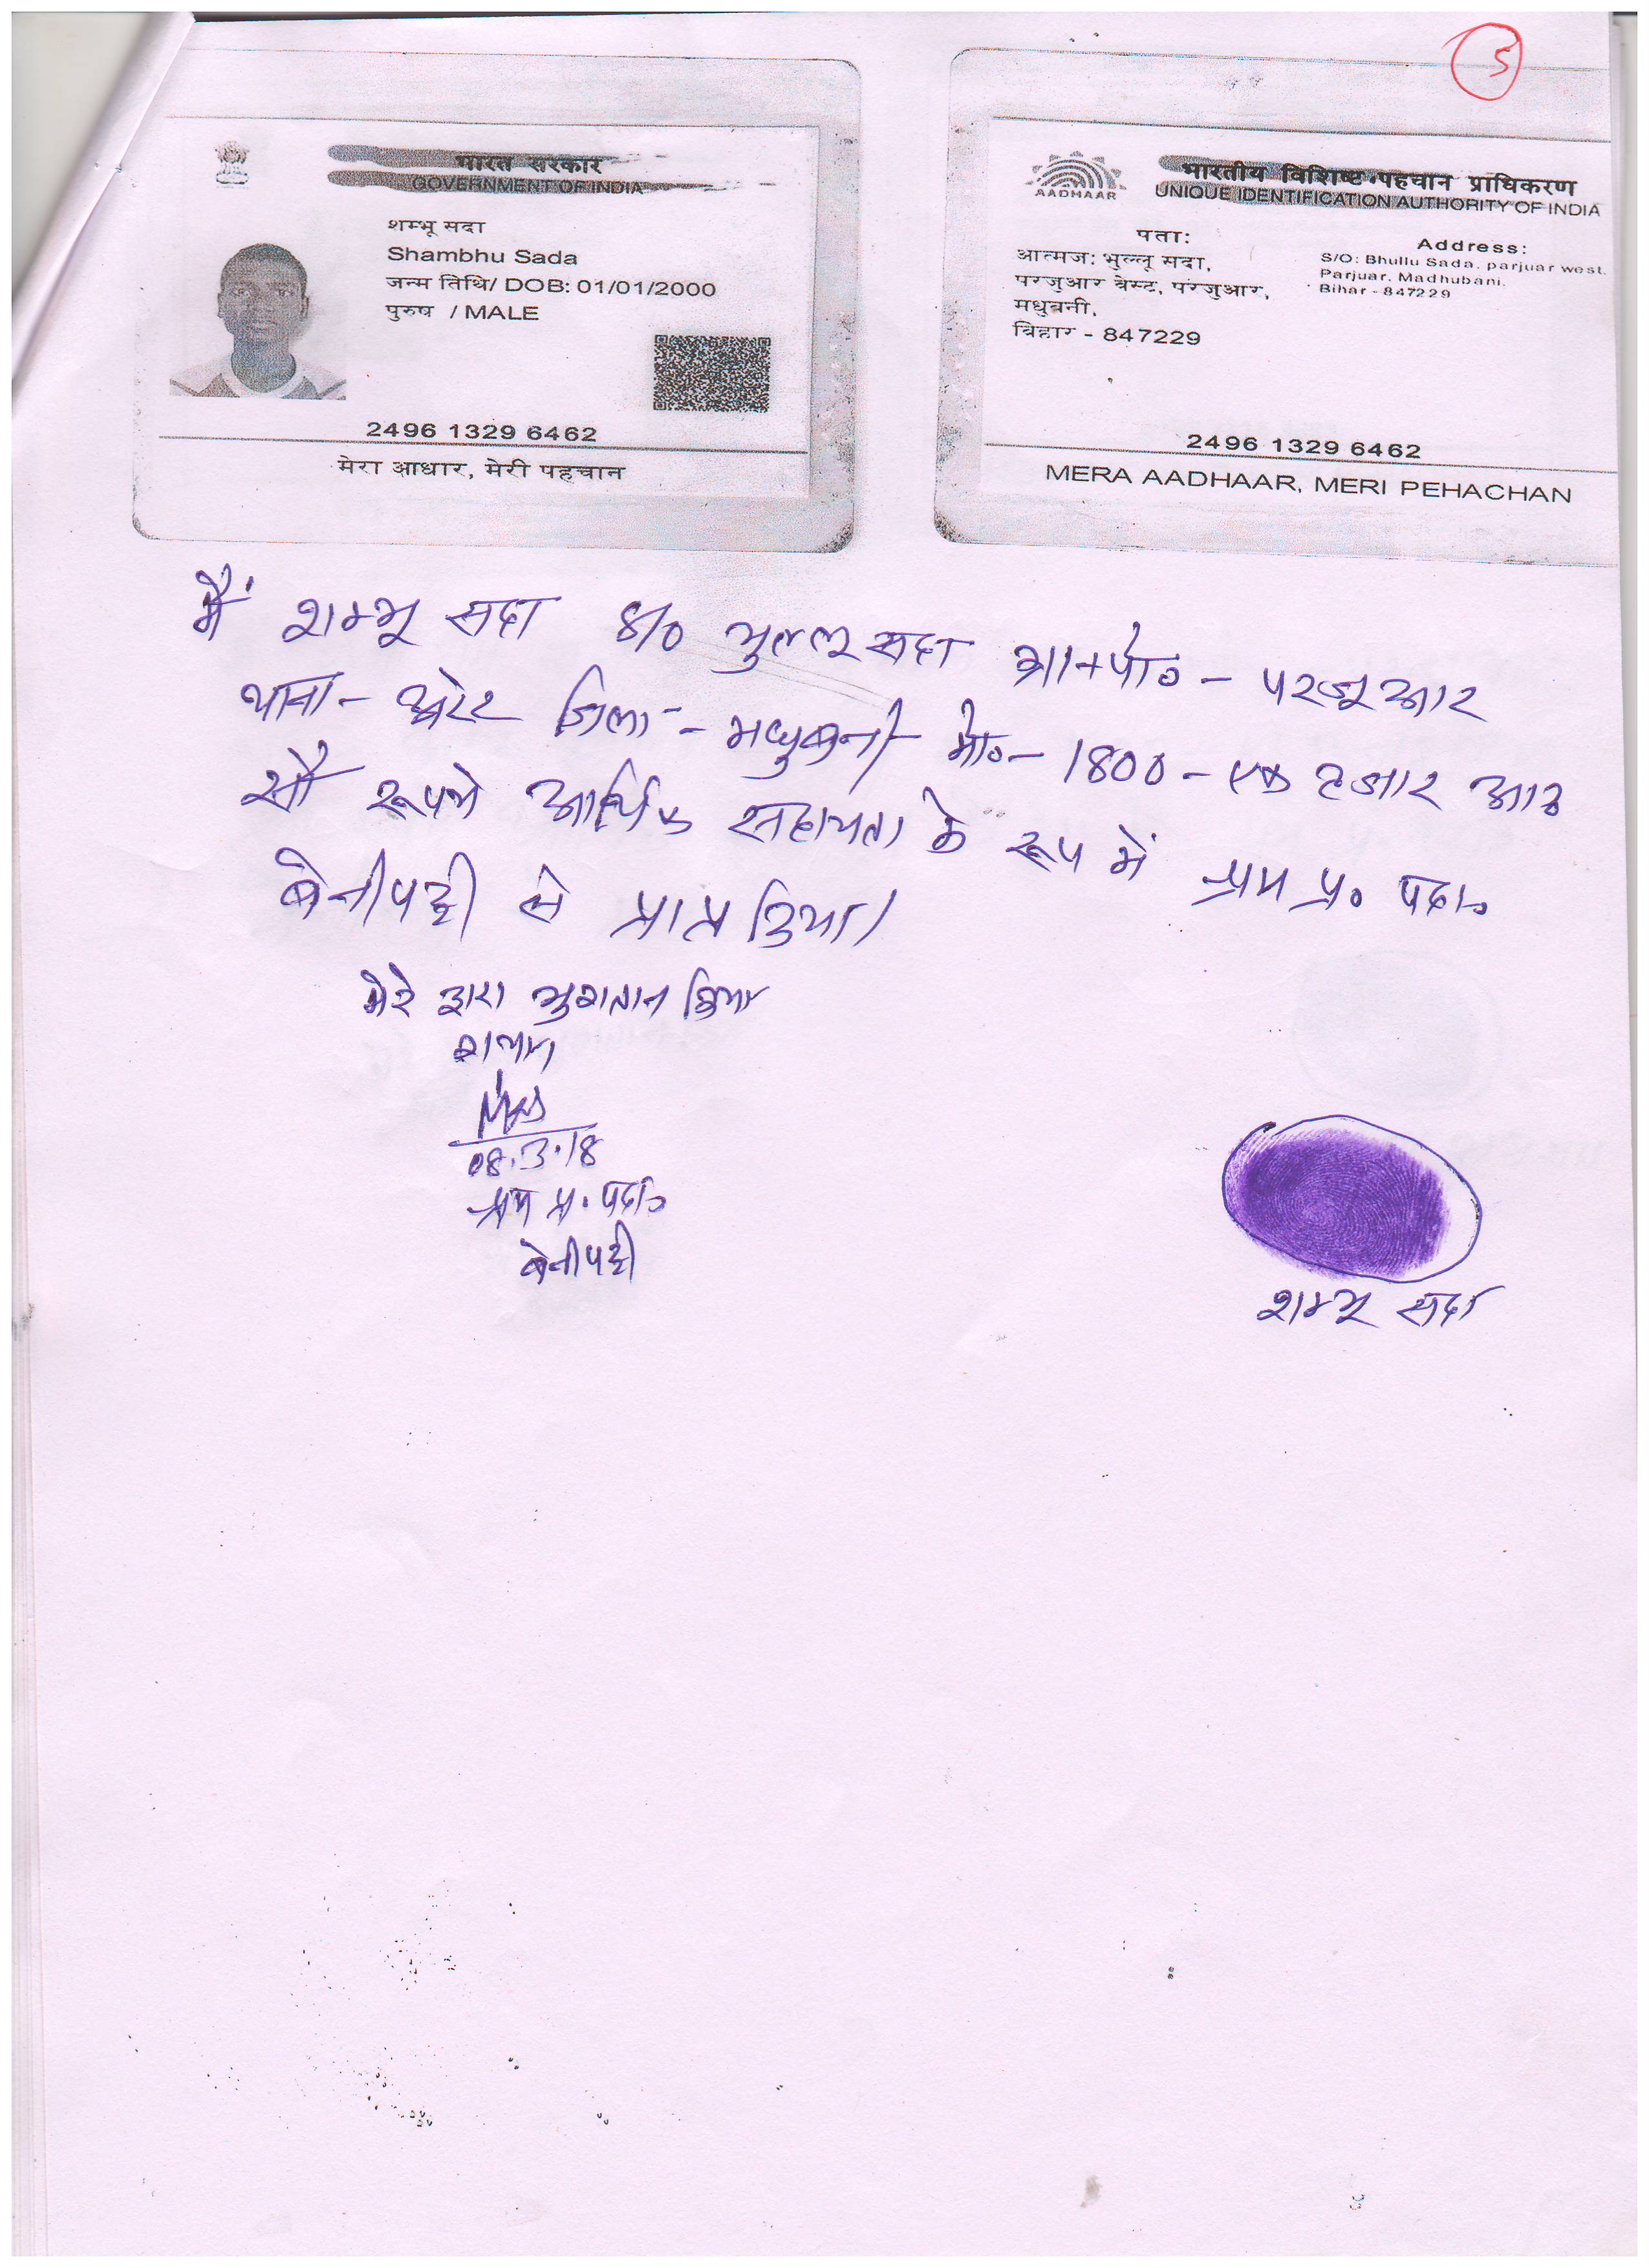 5
भारत सरकार
GOVERNMENT OF INDIA
शम्भू सदा
Shambhu Sada
जन्म तिथि/ DOB: 01/01/2000
पुरुष / MALE
2496 1329 6462
मेरा आधार, मेरी पहचान
भारतीय विशिष्ट पहचान प्राधिकरण
UNIQUE IDENTIFICATION AUTHORITY OF INDIA
AADHAAR
पता:
आत्मज: भुल्लू सदा,
परजुआर वेस्ट, परजुआर,
मधुबनी,
बिहार - 847229
Address:
S/O: Bhullu Sada, parjuar west,
Parjuar, Madhubani,
Bihar - 847229
2496 1329 6462
MERA AADHAAR, MERI PEHACHAN
मैं शम्भू सदा S/o भुल्लू सदा ग्रा+पो० - परजूआर
थाना - अरेर जिला - मधुबनी मो० - 1800 - एक हजार आठ
सौ रूपये आर्थिक सहायता के रूप में श्रम प्र० पदा०
बेनीपट्टी से प्राप्त किया।
मेरे द्वारा भुगतान किया
गया।
08.3.18
श्रम प्र. पदा०
बेनीपट्टी
शम्भू सदा